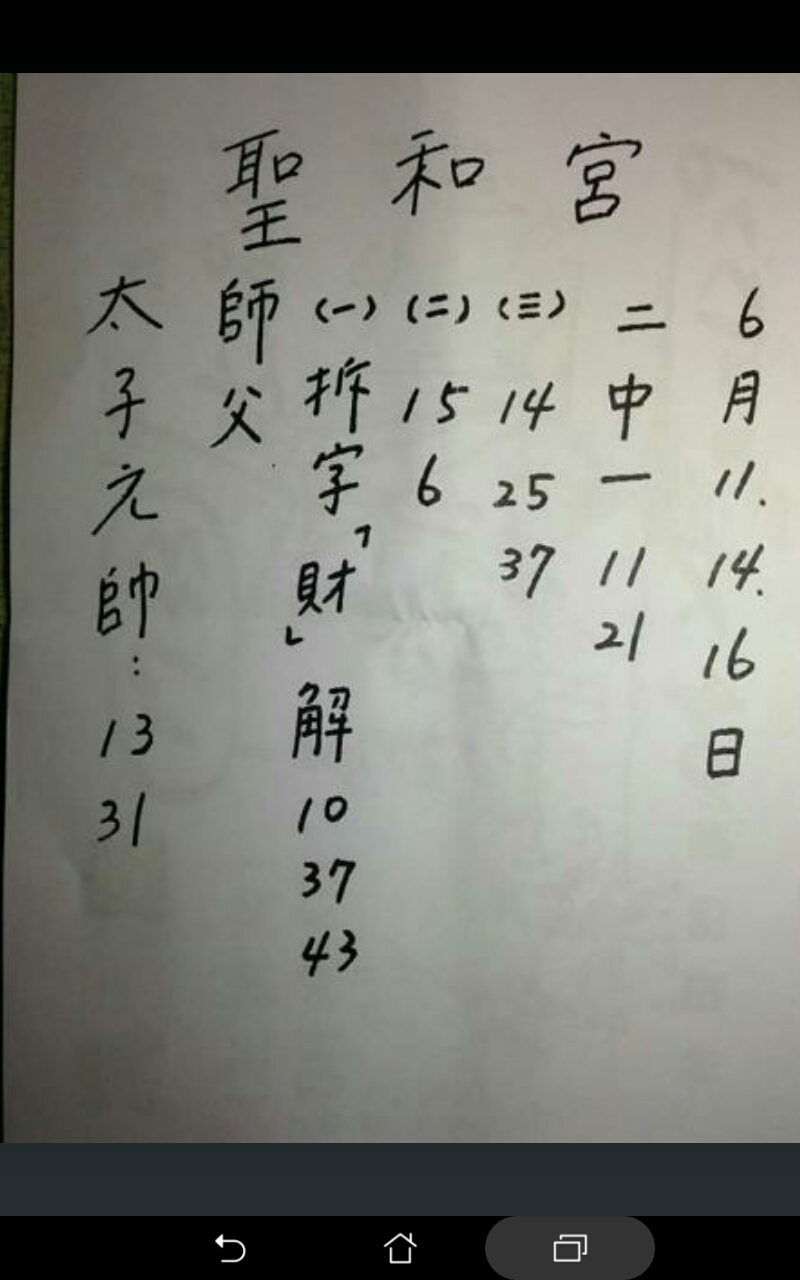 聖和宮
太子元帥：13 31
師父
(一) 拆字「財」解 10 37 43
(二) 15 6
(三) 14 25 37
二中一 11 21
6月11.14.16日